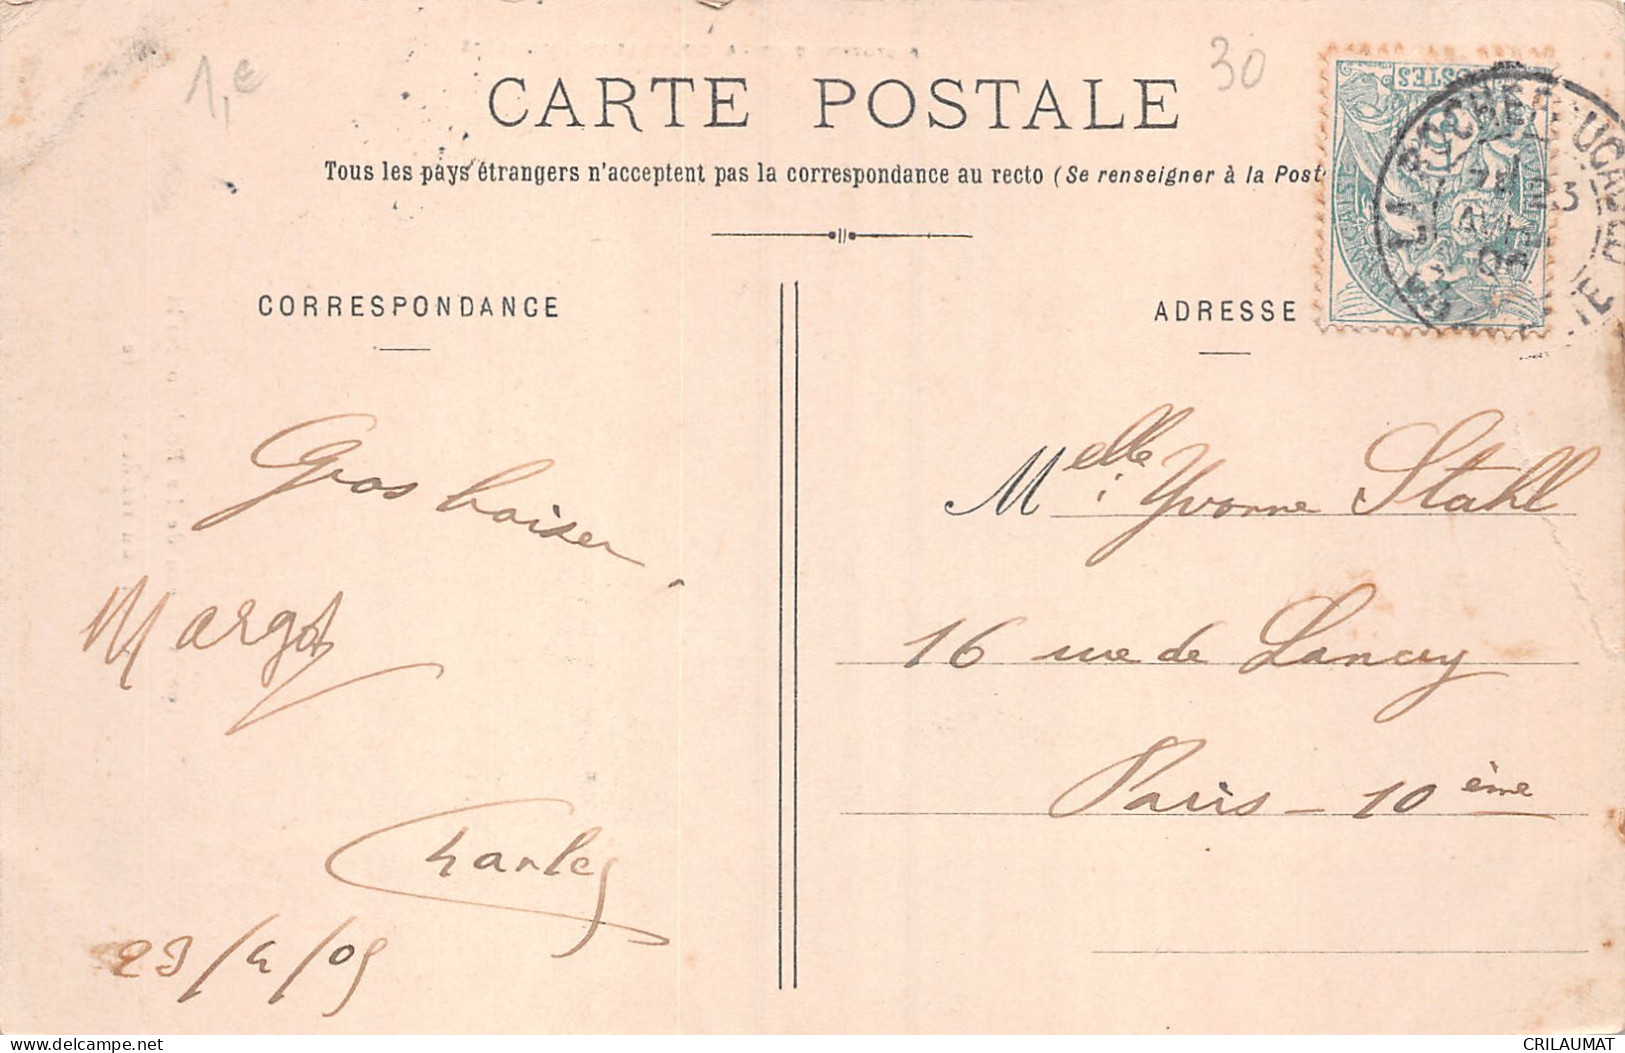 1,€
30
CARTE POSTALE
Tous les pays étrangers n'acceptent pas la correspondance au recto (Se renseigner à la Post
POSTES
LA ROCHEFOUCAULD
CORRESPONDANCE
ADRESSE
Gros baiser.
Margot
Charles
23/4/05
Melle Yvonne Stahl
16 rue de Lancry
Paris - 10ème
delcampe.net
CRILAUMAT